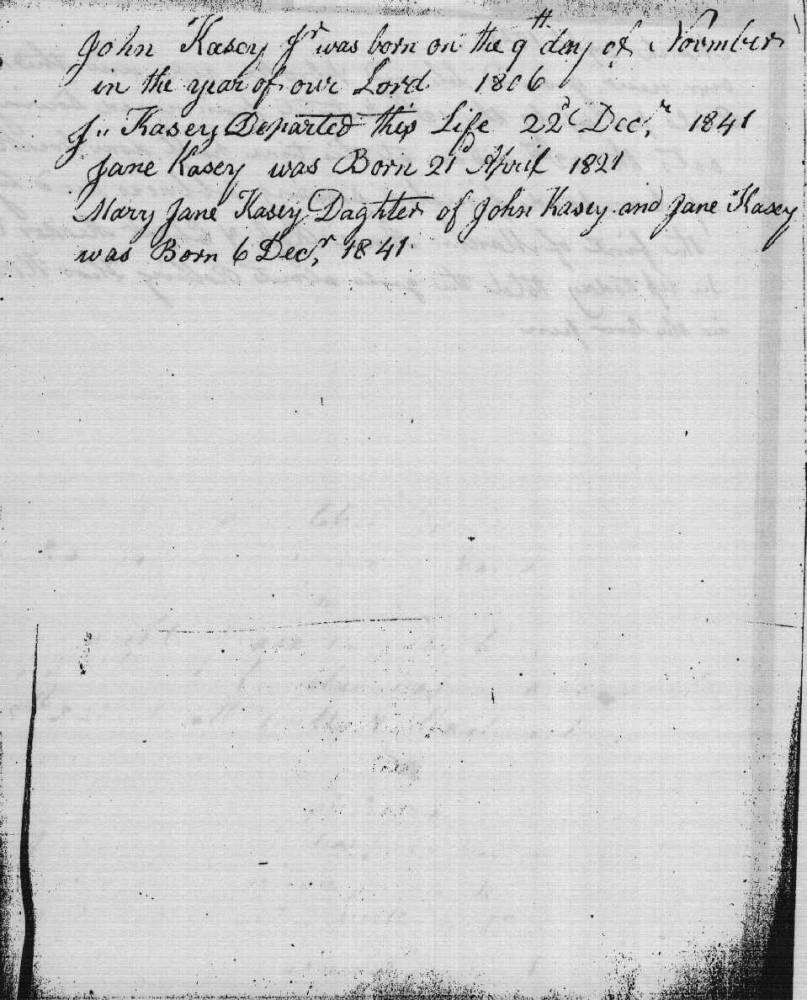 John Kasey Jr was born on the 9th day of Novmber
in the year of our Lord 1806
J,, Kasey Departed this Life 22d Decr, 1841
Jane Kasey was Born 21d April 1821
Mary Jane Kasey Daghter of John Kasey and Jane Kasey
was Born 6 Decr, 1841